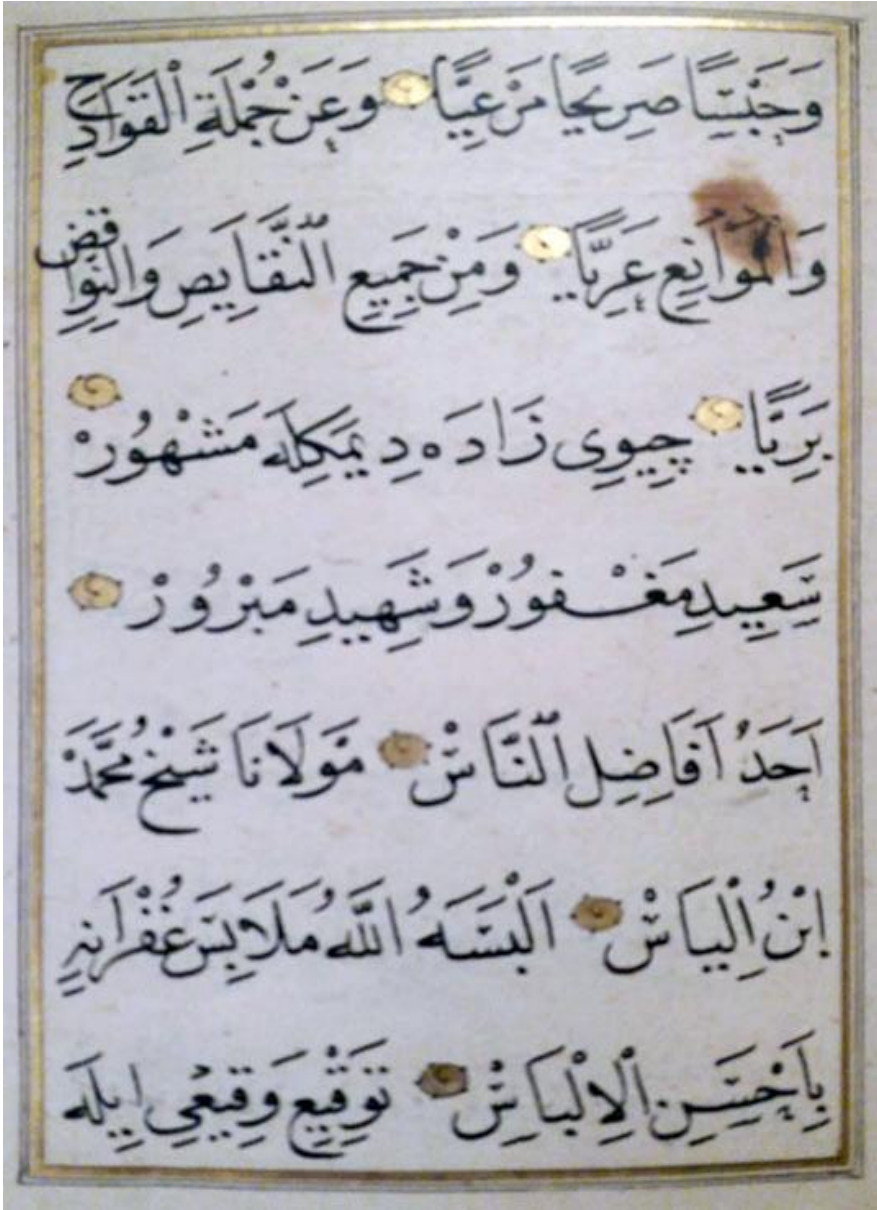 وَحَبْسًا صَرِيحًا مَرْعِيًّا وَعَنْ جُمْلَةِ الْقَوَادِحِ
وَالْمَوَانِعِ عَرِيًّا وَمِنْ جَمِيعِ النَّقَايِصِ وَالنَّوَاقِضِ
بَرِيًّا چِيوِي زَادَه دِيمَكِلَه مَشْهُورْ
سَعِيدِ مَغْفُورْ وَشَهِيدِ مَبْرُورْ
اَحَدُ اَفَاضِلِ النَّاسْ مَوْلَانَا شَيْخْ مُحَمَّدْ
اِبْنُ اِلْيَاسْ اَلْبَسَهُ اللَّهُ مَلَابِسَ غُفْرَانِهِ
بِاَحْسَنِ الْاِلْبَاسْ تَوْقِيعِ وَقِيعِي اِيلَه